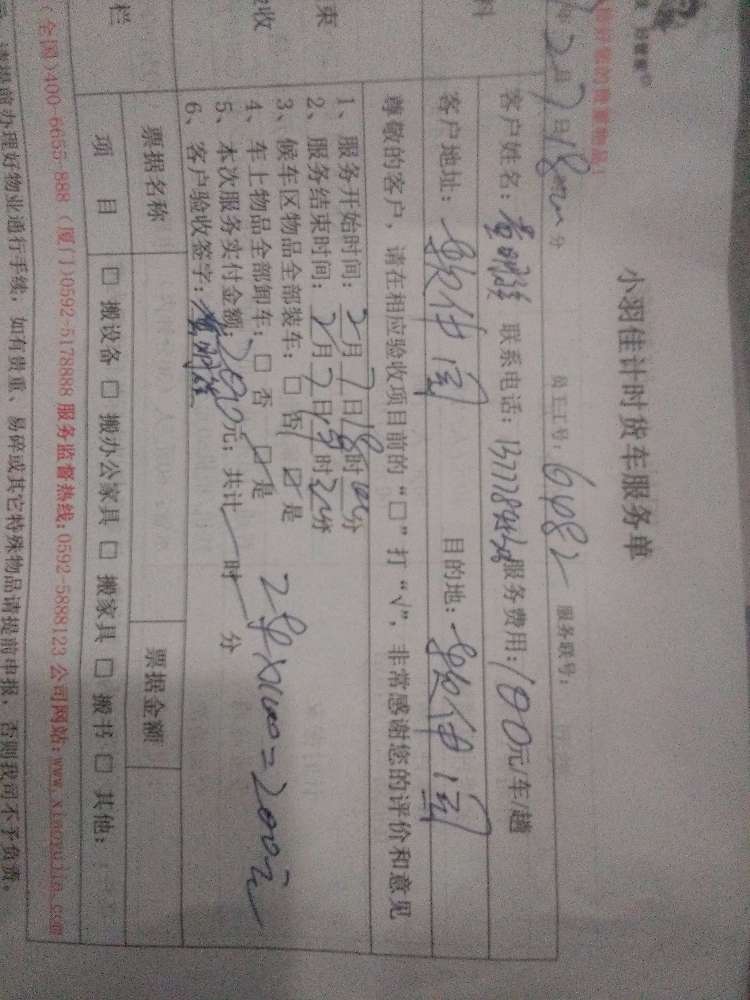 小羽佳计时货车服务单
年2月7日18时 分 员工工号：6482 服务联号：
客户姓名： 联系电话： 服务费用：100元/车/趟
客户地址：软件园 目的地：软件园
尊敬的客户，请在相应验收项目前的“□”打“√”，非常感谢您的评价和意见
1、服务开始时间：2月7日18时 分
2、服务结束时间：2月7日19时 分
3、候车区物品全部装车：□ 否 ☑ 是
4、车上物品全部卸车：□ 否 ☑ 是
5、本次服务实付金额：200元；共计 时 分
6、客户验收签字：
2车x100=200元
票据名称 票据金额
项 目 □ 搬设备 □ 搬办公家具 □ 搬家具 □ 搬书 □ 其他：
（全国）400-6655-888（厦门）0592-5178888 服务监督热线：0592-5888123 公司网站：www.xiaoyujia.com
请提前办理好物业通行手续，如有贵重、易碎或其它特殊物品请提前申报，否则我司不予负责。
料
束
验收
栏